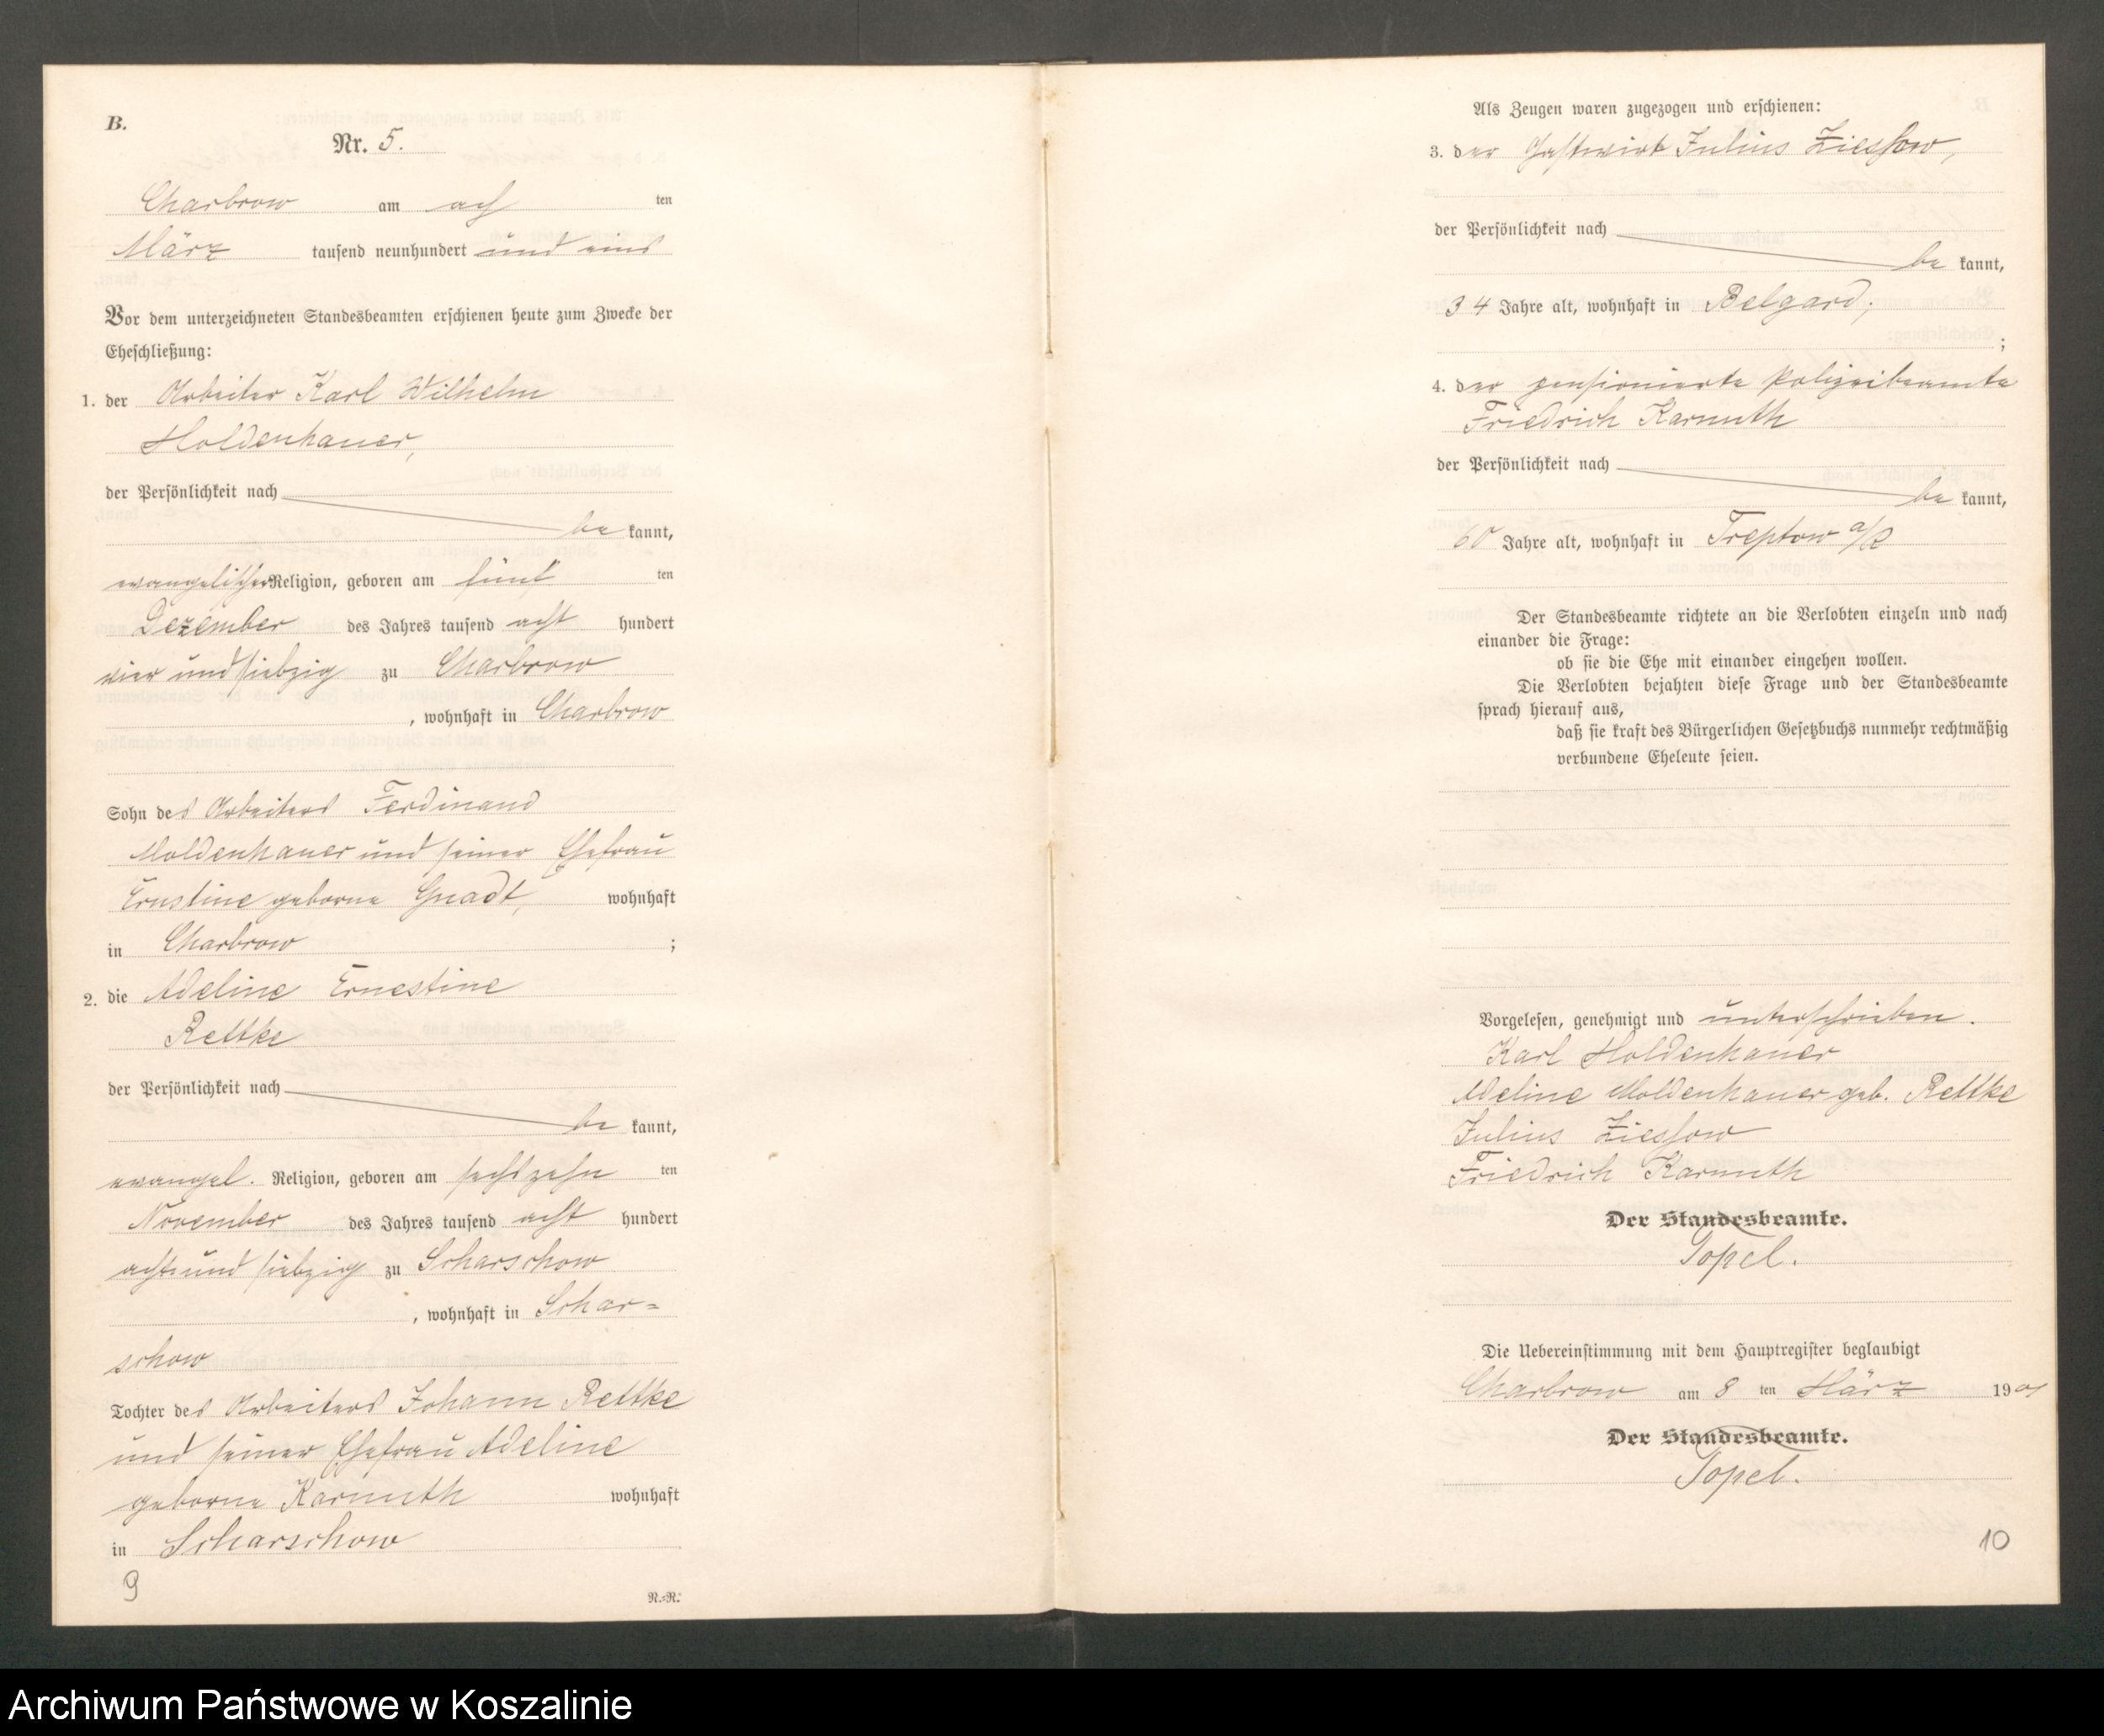 B.
Nr. 5.
Charbrow am ach ten
März tausend neunhundert und eins
Vor dem unterzeichneten Standesbeamten erschienen heute zum Zwecke der
Eheschließung:
1. der Arbeiter Karl Wilhelm
Moldenhauer,
der Persönlichkeit nach
be kannt,
evangelischer Religion, geboren am fünf ten
Dezember des Jahres tausend acht hundert
vier und siebzig zu Charbrow
, wohnhaft in Charbrow
Sohn des Arbeiters Ferdinand
Moldenhauer und seiner Ehefrau
Ernstine geborne Gnadt, wohnhaft
in Charbrow ;
2. die Adeline Ernestine
Rettke
der Persönlichkeit nach
be kannt,
evangel. Religion, geboren am sechszehn ten
November des Jahres tausend acht hundert
acht und siebzig zu Scharschow
, wohnhaft in Schar=
schow
Tochter des Arbeiters Johann Rettke
und seiner Ehefrau Adeline
geborne Karmuth wohnhaft
in Scharschow
9
N.=N.
Als Zeugen waren zugezogen und erschienen:
3. der Gastwirt Julius Ziessow,
der Persönlichkeit nach
be kannt,
34 Jahre alt, wohnhaft in Belgard,
;
4. der pensionierte Polizeibeamte
Friedrich Karmuth
der Persönlichkeit nach
be kannt,
60 Jahre alt, wohnhaft in Treptow a/R
Der Standesbeamte richtete an die Verlobten einzeln und nach
einander die Frage:
ob sie die Ehe mit einander eingehen wollen.
Die Verlobten bejahten diese Frage und der Standesbeamte
sprach hierauf aus,
daß sie kraft des Bürgerlichen Gesetzbuchs nunmehr rechtmäßig
verbundene Eheleute seien.
Vorgelesen, genehmigt und unterschrieben.
Karl Moldenhauer
Adeline Moldenhauer geb. Rettke
Julius Ziessow
Friedrich Karmuth
Der Standesbeamte.
Topel.
Die Uebereinstimmung mit dem Hauptregister beglaubigt
Charbrow am 8 ten März 1901
Der Standesbeamte.
Topel.
10
Archiwum Państwowe w Koszalinie